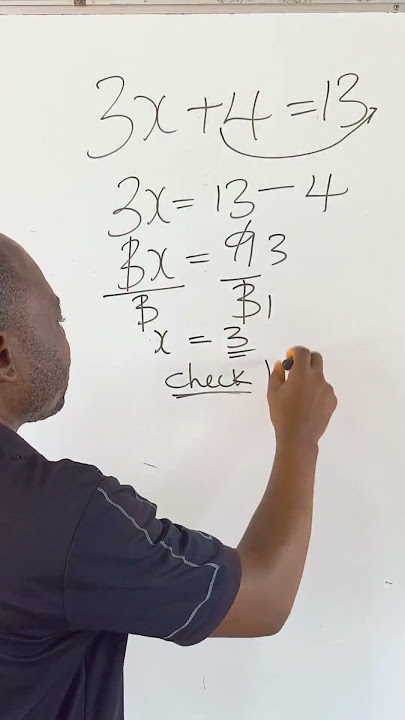 3x + 4 = 13
3x = 13 - 4
3x = 9 3
3 3 1
x = 3
check